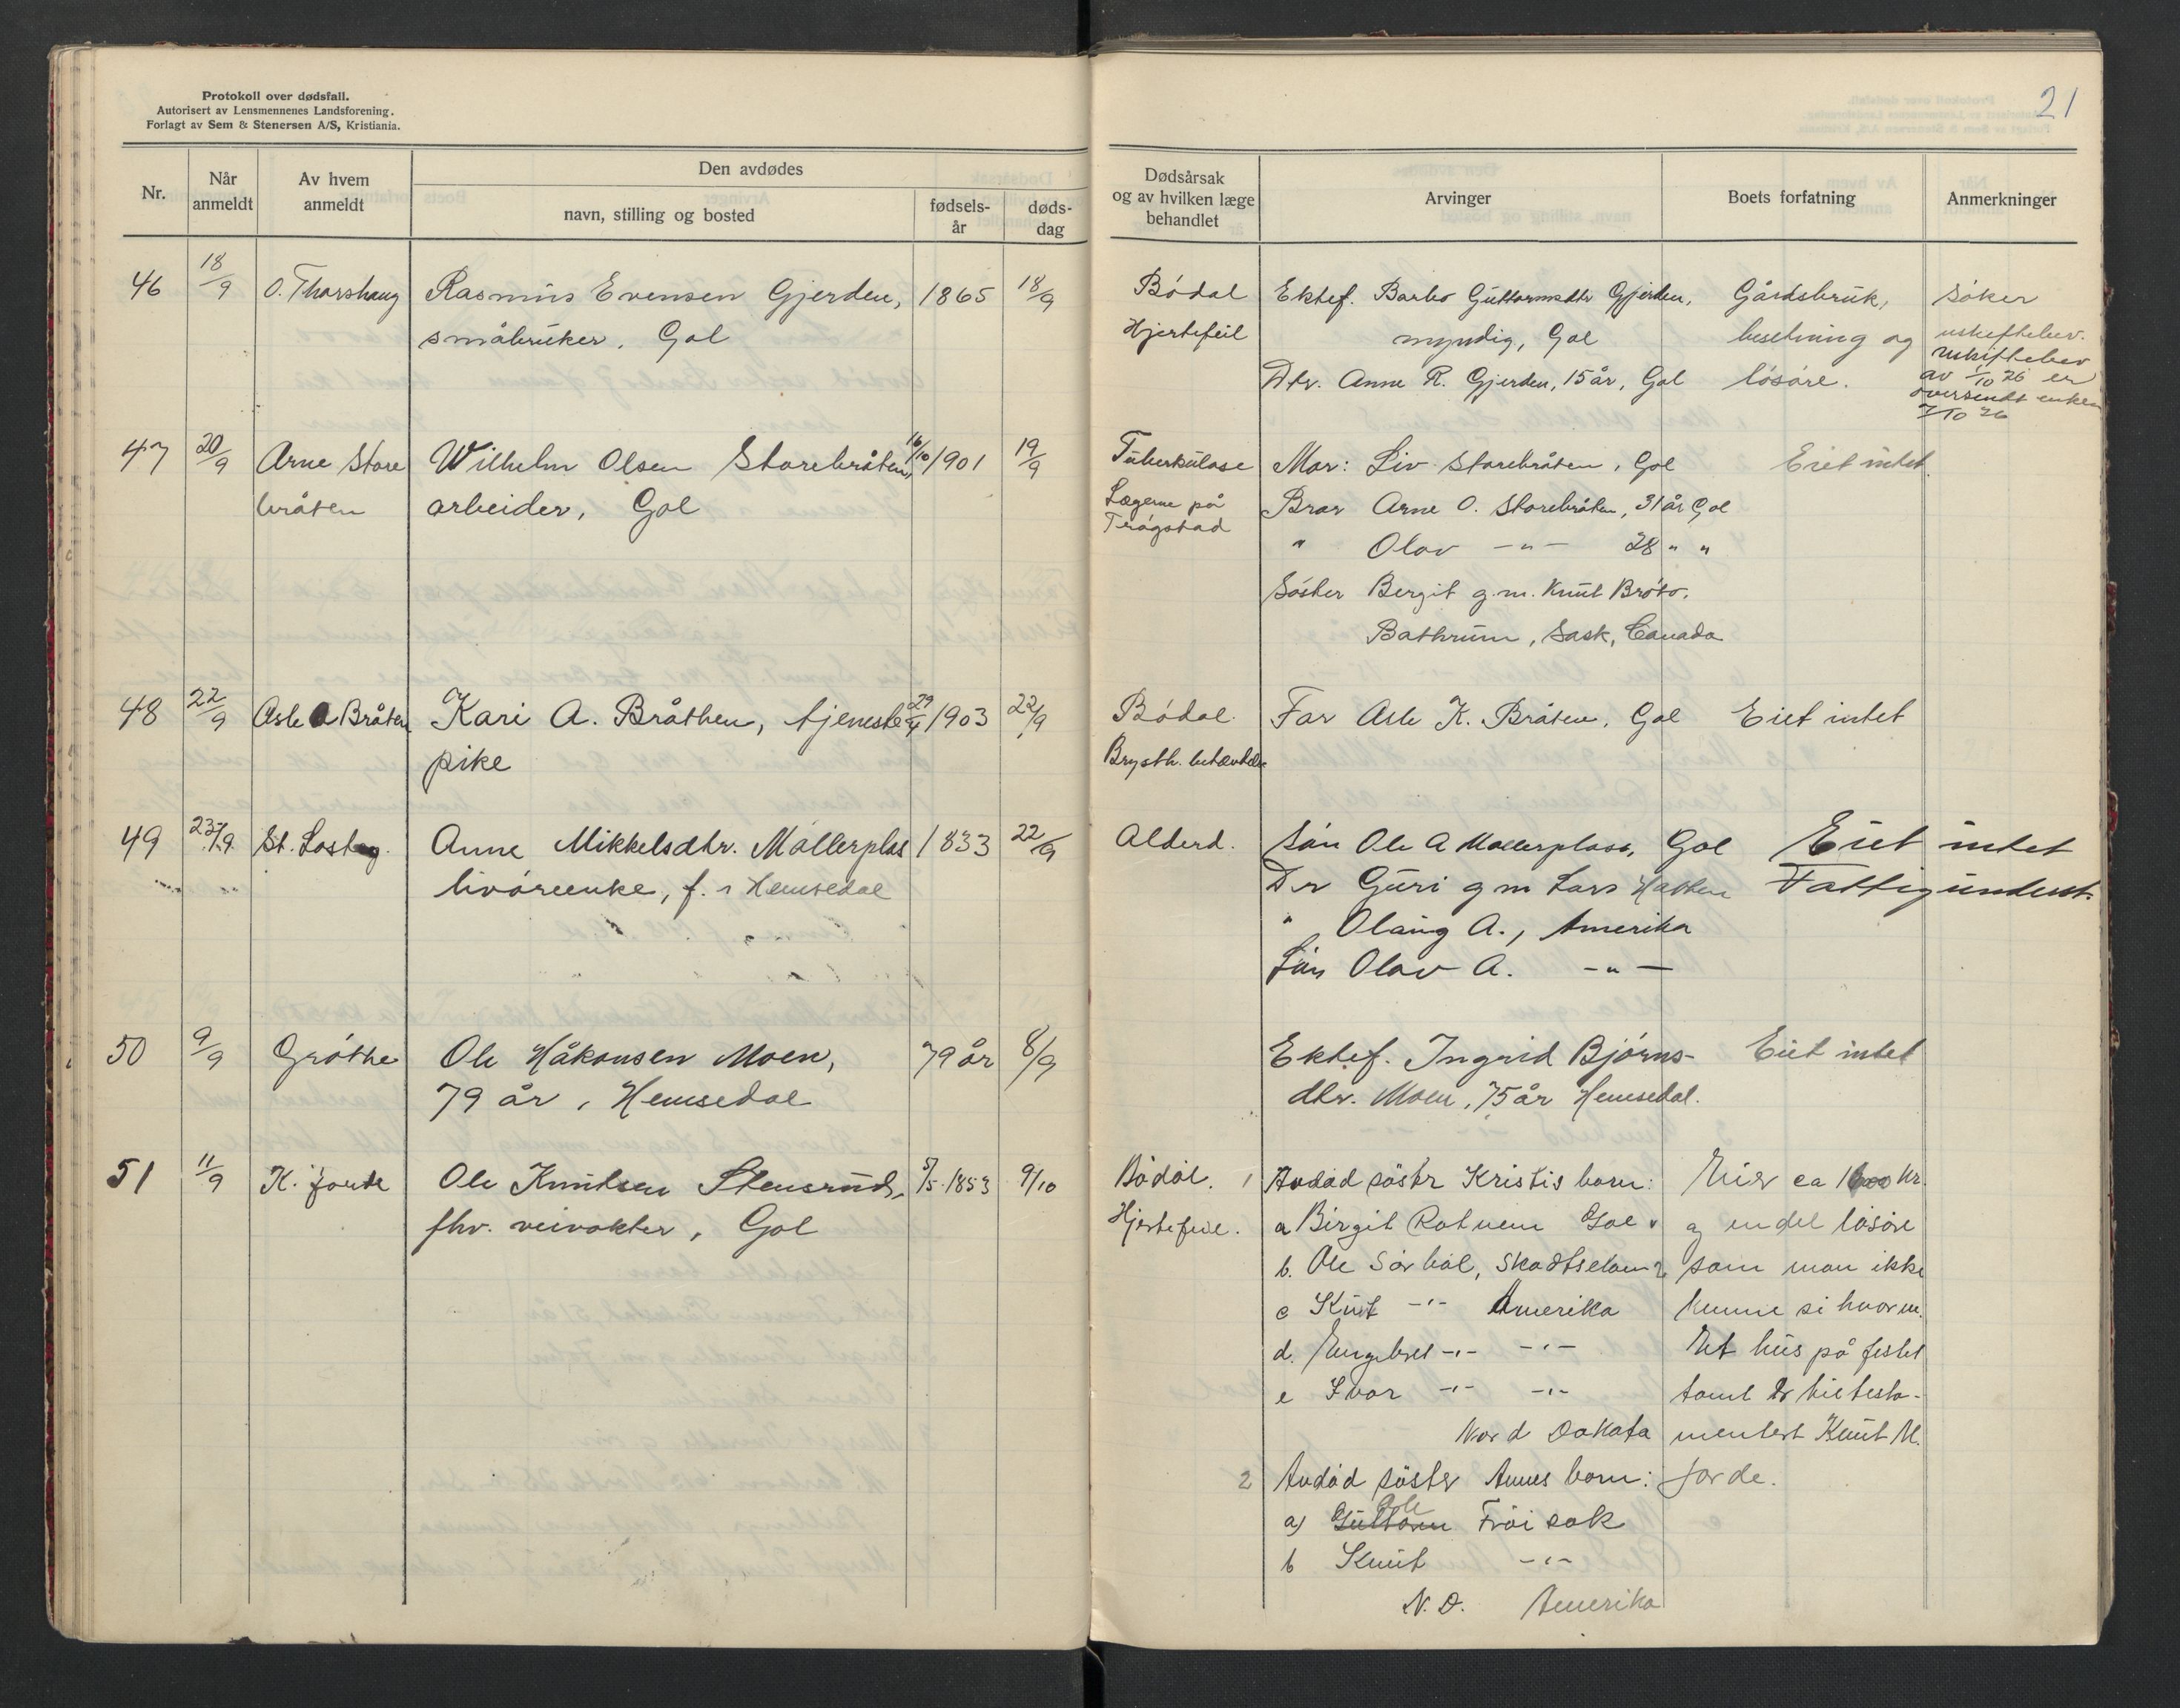 Protokoll over dødsfall.
Autorisert av Lensmennenes Landsforening.
Forlagt av Sem & Stenersen A/S, Kristiania.
21
Nr. Når anmeldt Av hvem anmeldt Den avdødes
navn, stilling og bosted fødsels-år døds-dag
Dødsårsak og av hvilken læge behandlet Arvinger Boets forfatning Anmerkninger
46 18/9 O. Thorshaug Rasmus Evensen Gjerden, 1865 18/9
småbruker, Gol
Bödal Ektef. Barbo Guttormsdtr Gjerden, Gårdsbruk, söker
Hjertefeil myndig, Gol besetning og uskiftebev.
Dtr. Anne R. Gjerden, 15 år, Gol lösöre.
uskiftebev
av 1/10 26 er
oversendt enken
7/10 26
47 20/9 Arne Store Wilhelm Olsen Storebråten, 16/10 1901 19/9
bråten arbeider, Gol
Tuberkulose Mor: Liv Storebråten, Gol Eiet intet
Lægerne på Bror Arne O. Storebråten, 31 år Gol
Trögstad " Olav -"- 28 " "
Söster Bergit g.m. Knut Bröto.
Bathrum, Sask, Canada
48 22/9 Asle A Bråten Kari A. Bråthen, tjeneste 29/4 1903 22/9
pike
Bödal. Far Asle K. Bråten, Gol Eiet intet
Brysth. betændelse
49 23/9 St. Anne Mikkelsdtr. Möllerplas 1833 22/9
livöreenke, f. i Hemsedal
Alderd. Sön Ole A Möllerplass, Gol Eiet intet
Dr Guri g m Lars Hatten Fattigunderst.
" Olaug A., Amerika
Sön Olav A. -"-
50 9/9 Gröthe Ole Håkonsen Moen, 79 år 8/9
79 år, Hemsedal
Ektef. Ingrid Björns- Eiet intet
dtr. Moen, 75 år Hemsedal.
51 11/9 K. Jorde Ole Knutsen Stensrud, 5/5 1853 9/10
fhv. veivokter, Gol
Bödal. 1 Avdöd söster Kristis born: Eier ca kr.
Hjertefeil. a Birgit Rotneim Gol og en del lösöre
b. Ole Sörböl, som man ikke
c Knut -"- Amerika kunne si hvorm.
d. Engebret -"- -"- Et hus på festet
e Ivar -"- -"- tomt er bitesta-
Nord Dakota mentert Knut M.
2 Avdöd söster Annes born: Jorde.
a) Guttorm Ole Fröisok
b Knut -"-
N.D. Amerika